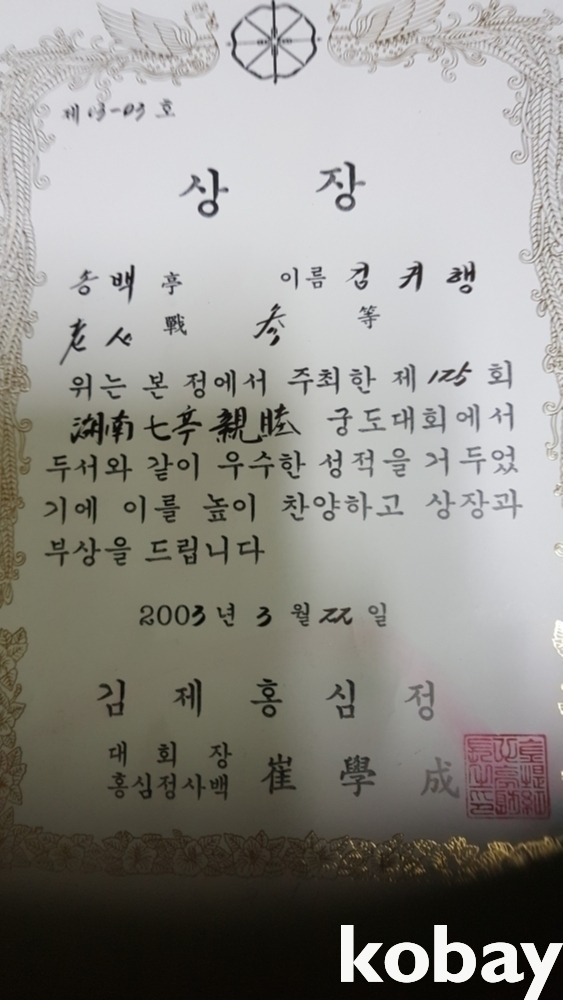 제 03-03 호
상 장
송백 亭 이름 김 귀 행
老人 戰 參 等
위는 본 정에서 주최한 제 125 회
湖南七亭親睦 궁도대회에서
두서와 같이 우수한 성적을 거두었
기에 이를 높이 찬양하고 상장과
부상을 드립니다
2003 년 3 월 22 일
김 제 홍 심 정
대 회 장
홍심정사백 崔 學 成
kobay